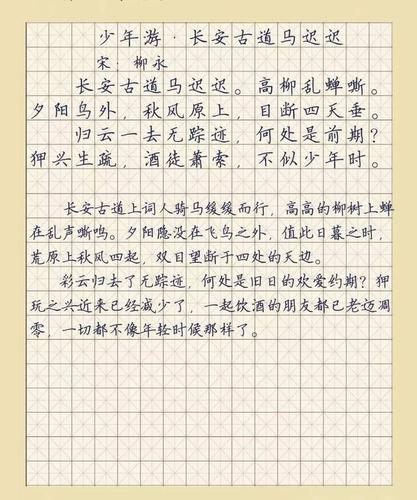 少年游·长安古道马迟迟
宋：柳永
长安古道马迟迟。高柳乱蝉嘶。
夕阳鸟外，秋风原上，目断四天垂。
归云一去无踪迹，何处是前期？
狎兴生疏，酒徒萧索，不似少年时。
长安古道上词人骑马缓缓而行，高高的柳树上蝉
在乱声嘶鸣。夕阳隐没在飞鸟之外，值此日暮之时，
荒原上秋风四起，双目望断于四处的天边。
彩云归去了无踪迹，何处是旧日的欢爱约期？狎
玩之兴近来已经减少了，一起饮酒的朋友都已老迈凋
零，一切都不像年轻时候那样了。